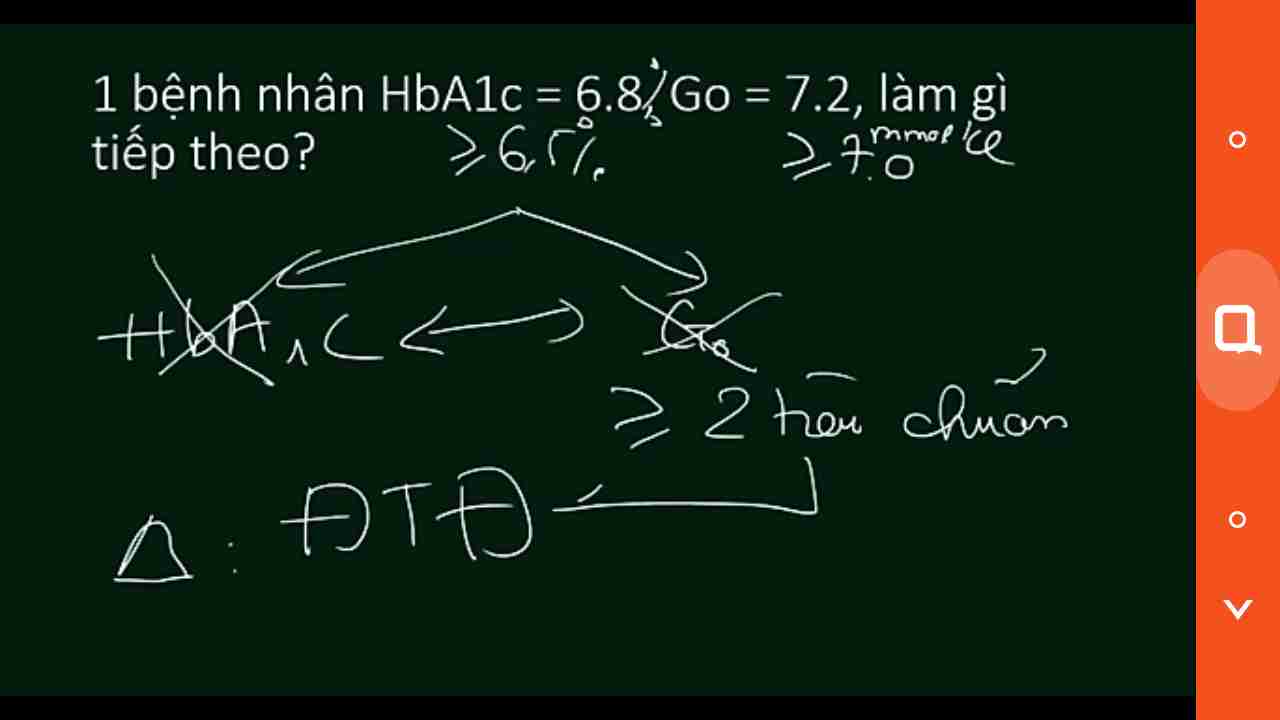 1 bệnh nhân HbA1c = 6.8% Go = 7.2, làm gì
tiếp theo? ≥ 6,5% ≥ 7.0 mmol/l
HbA1C Go
≥ 2 tiêu chuẩn
Δ : ĐTĐ